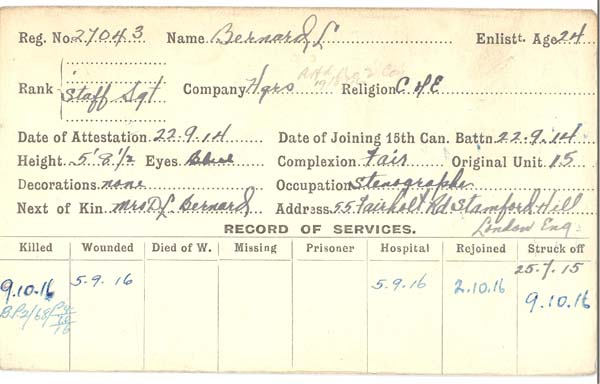 Reg. No. 27043 Name Bernard, L Enlistt. Age 24
Rank Staff Sgt Company Hqrs No 2 Coy Religion C of E
Date of Attestation 22.9.14 Date of Joining 15th Can. Battn. 22.9.14
Height 5' 8 1/2 Eyes Blue Complexion Fair Original Unit 15
Decorations none Occupation Stenographer
Next of Kin Mrs D.L. Bernard, Address 55 Fairholt Rd Stamford Hill
London Eng.
RECORD OF SERVICES.
Killed Wounded Died of W. Missing Prisoner Hospital Rejoined Struck off
25.7.15
9.10.16 5.9.16 5.9.16 2.10.16 9.10.16